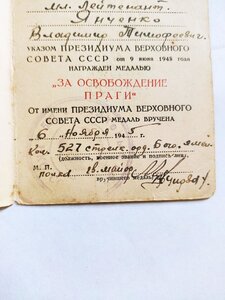 мл. Лейтенант
Янченко
Владимир Тимофеевич.
УКАЗОМ ПРЕЗИДИУМА ВЕРХОВНОГО
СОВЕТА СССР от 9 июня 1945 года
НАГРАЖДЕН МЕДАЛЬЮ
„ЗА ОСВОБОЖДЕНИЕ
ПРАГИ“
От имени ПРЕЗИДИУМА ВЕРХОВНОГО
СОВЕТА СССР МЕДАЛЬ ВРУЧЕНА
6 Ноября 1945 г.
Ком. 527 стрелк. орд. Бог.
(должность, воинское звание и подпись лица,
М. П. майор
вручившего медаль)